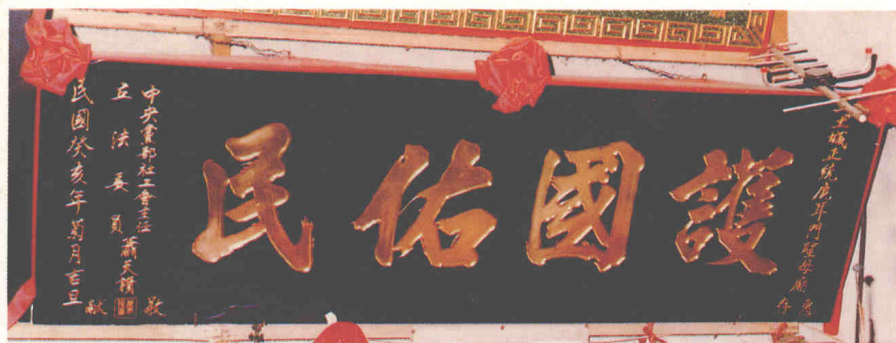 土城正統鹿耳門聖母廟惠存
護國佑民
中央黨部社工會主任
立法委員
蕭天讚
敬獻
民國癸亥年菊月吉旦